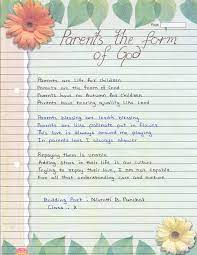 Page
Parents the form
of God
Parents are life for children
Parents are the form of God
Parents have no Autumn for children
Parents have bearing quality like land
Parents blessing are leash blessing
Parents are like pollinate put in flower
This love is always around me playing
In parents love I always shower
Repaying them is unable
Adding stars in their life is our culture
Trying to repay their love, I am not capable
For all that understanding care and nurture
Budding Poet : Niyanti B. Panchal
Class : X